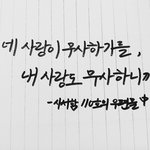 네 사랑이 무사하기를,
내 사랑도 무사하니까
-사서함 110호의 우편물 中